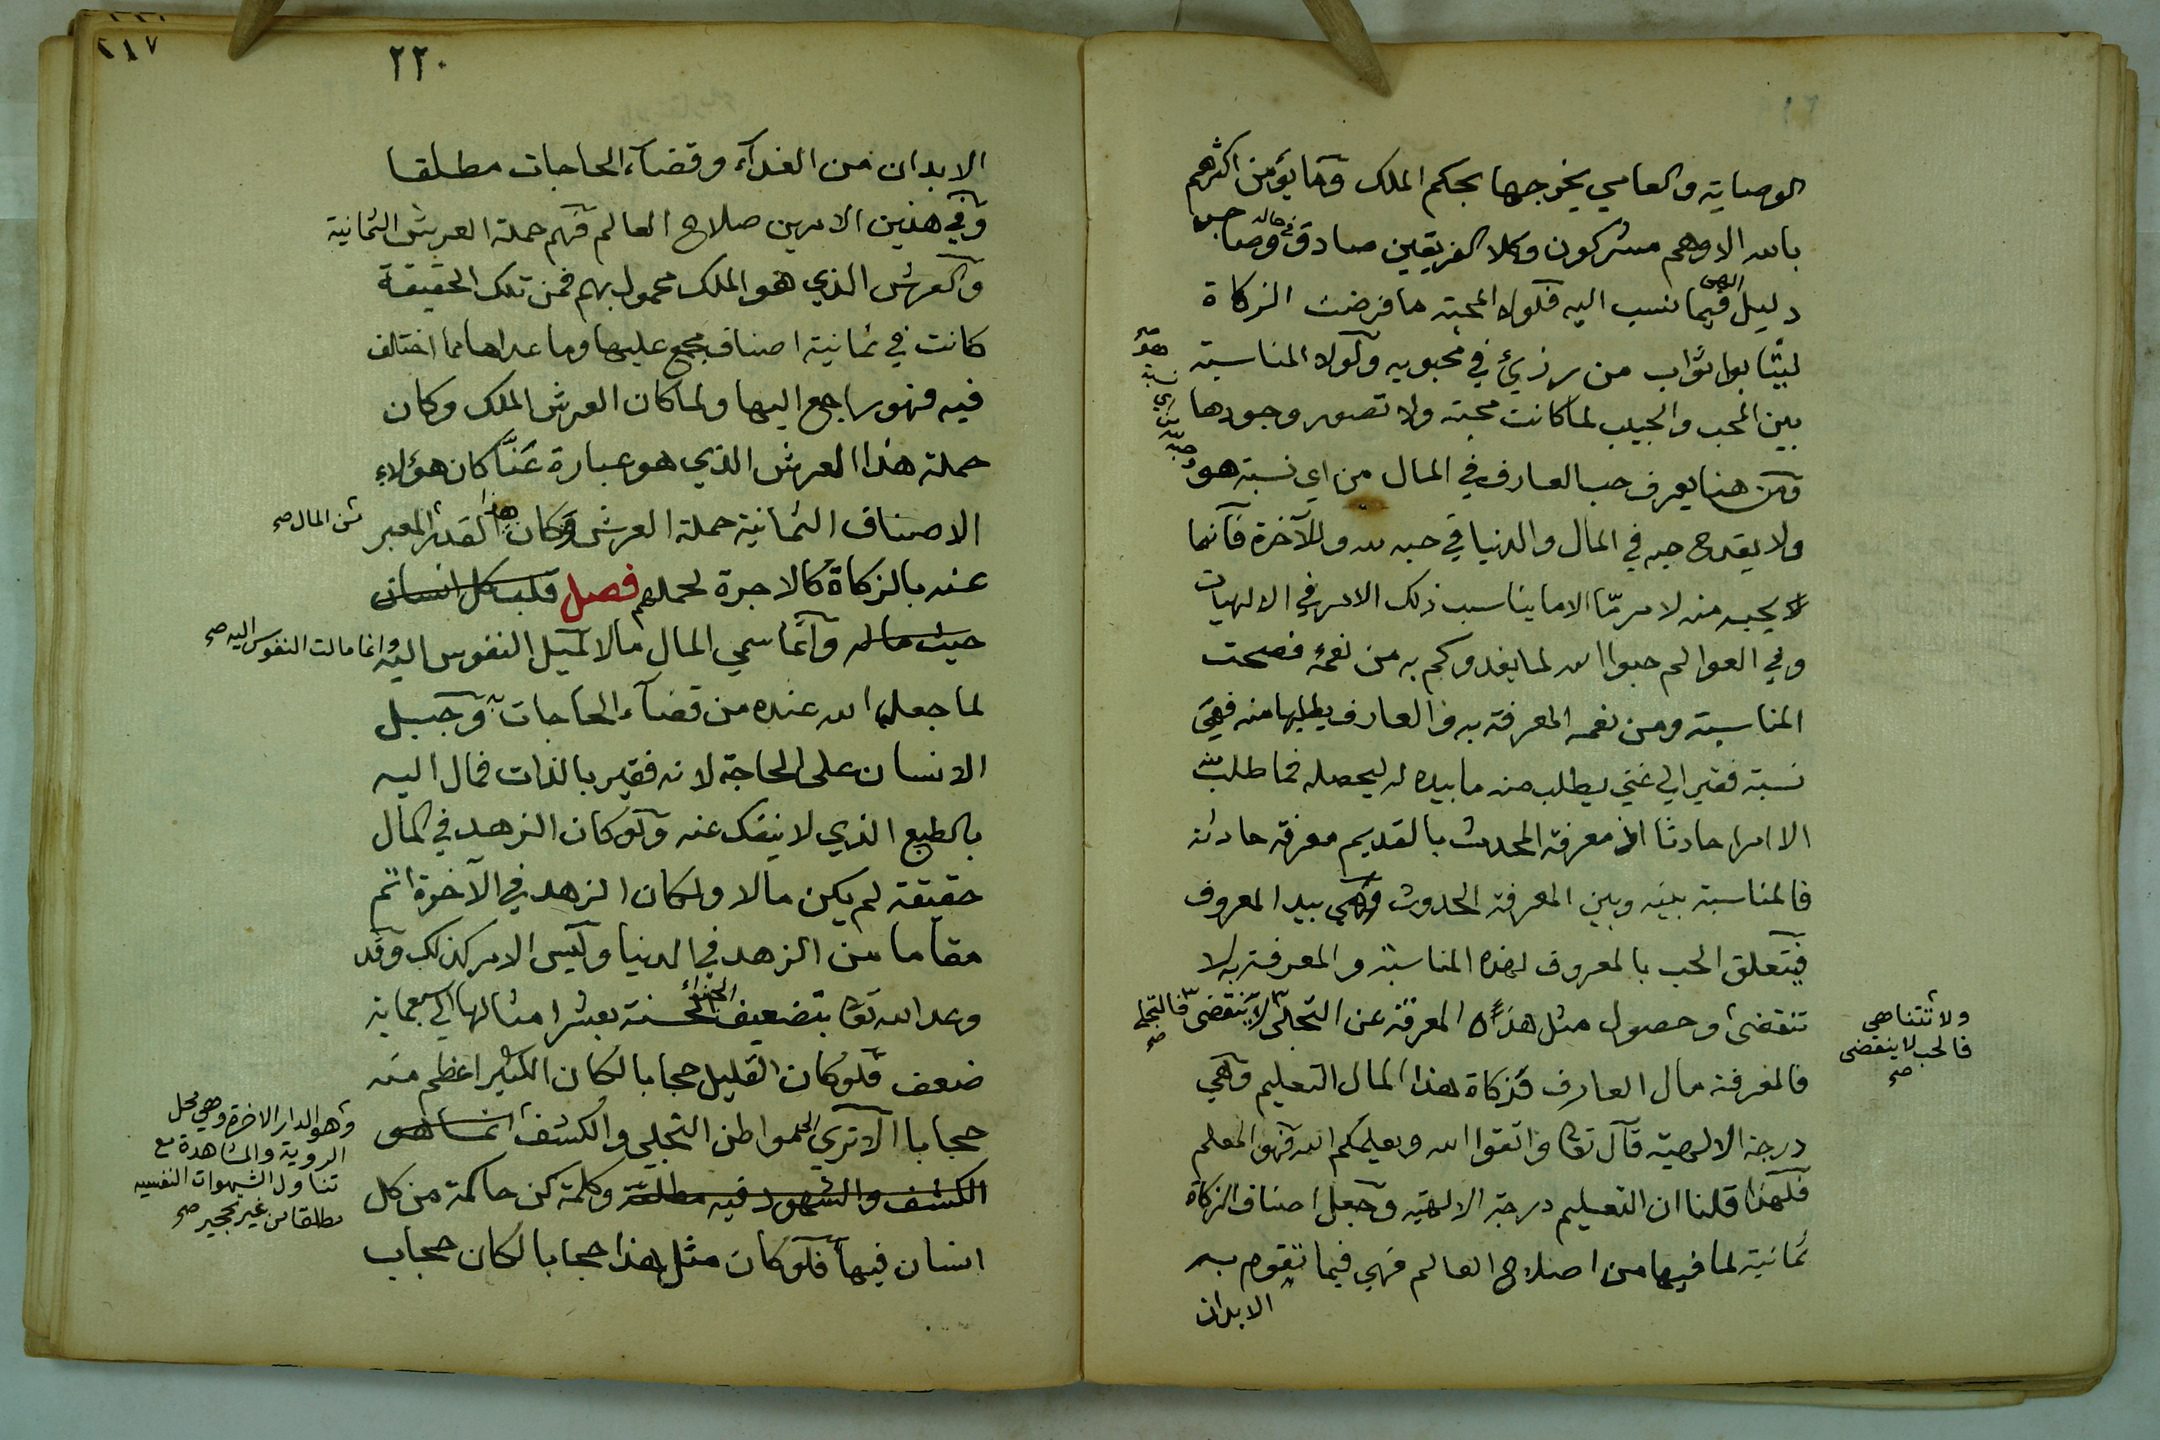 الوصاية والعامي يخرجها بحكم الملك وما يؤمن اكثرهم
بالله الا وهم مشركون وكلا الفريقين صادق في حاله وصاحب
دليل الهي فيما نسب اليه فلولا المحبة ما فرضت الزكاة
ليثابوا ثواب من رزئ في محبوبه ولولا المناسبة
بين المحب والحبيب لما كانت محبة ولا تصور وجودها
ومن هنا يعرف حب العارف في المال من اي نسبة هو
ولا يقدح حبه في المال والدنيا في حبه لله وللآخرة فانما
يحبه منه لامر مّا الا ما يناسب ذلك الامر في الالهيات
وفي العوالم حبوا الله لما يغذوكم به من نعمه فصحت
المناسبة ومن نعمه المعرفة به والعارف يطلبها منه فهي
نسبة فقير الى غني يطلب منه ما بيده له ليحصله فما طلب منه
الا امرا حادثا اذ معرفة المحدث بالقديم معرفة حادثة
فالمناسبة بينه وبين المعرفة الحدوث وهي بيد المعروف
فيتعلق الحب بالمعروف لهذه المناسبة والمعرفة به لا
تنقضى وحصول مثل هذه المعرفة عن التجلى لا ينقضى فالتجلى صح
ولا تتناهى
فالحب لا ينقضى
صح
فالمعرفة مال العارف فزكاة هذا المال التعليم وهي
درجة الالهية قال تعالى واتقوا الله ويعلمكم الله فهو المعلم
فلهذا قلنا ان التعليم درجة الالهية وجعل اصناف الزكاة
ثمانية لما فيها من اصلاح العالم فهي فيما تقوم به
الابدان
٢١٧
٢٢٠
الابدان من الغذاء وقضاء الحاجات مطلقا
وفي هذين الامرين صلاح العالم فهم حملة العرش الثمانية
والعرش الذي هو الملك محمول بهم فمن تلك الحقيقة
كانت في ثمانية اصناف مجمع عليها وما عداها مما اختلف
فيه فهو راجع اليها ولما كان العرش الملك وكان
حملة هذا العرش الذي هو عبارة عنّا كان هؤلاء
الاصناف الثمانية حملة العرش وكان هذا القدر المعبر
من المال صح
عنه بالزكاة كالاجرة لحملهم فصل قلب كل انسان
حيث ماله وانما سمي المال مالا لميل النفوس اليه
وانما مالت النفوس اليه صح
لما جعل الله عنده من قضاء الحاجات به وجبل
الانسان على الحاجة لانه فقير بالذات فمال اليه
بالطبع الذي لا ينفك عنه ولو كان الزهد في المال
حقيقة لم يكن مالا ولكان الزهد في الآخرة اتم
مقاما من الزهد في الدنيا وليس الامر كذلك وقد
وعد الله تعالى بتضعيف الجزاء الحسنة بعشر امثالها الى سبعماية
ضعف فلو كان القليل حجابا لكان الكثير اعظم منه
حجابا الا ترى الى مواطن التجلي والكشف انما هو
وهو الدار الاخرة وهي محل
الروية والمشاهدة مع
تناول الشهوات النفسيه
مطلقا من غير تحجير صح
الكشف والشهود فيه مطلقة وكلمة كن حاكمة من كل
انسان فيها فلو كان مثل هذا حجابا لكان حجاب